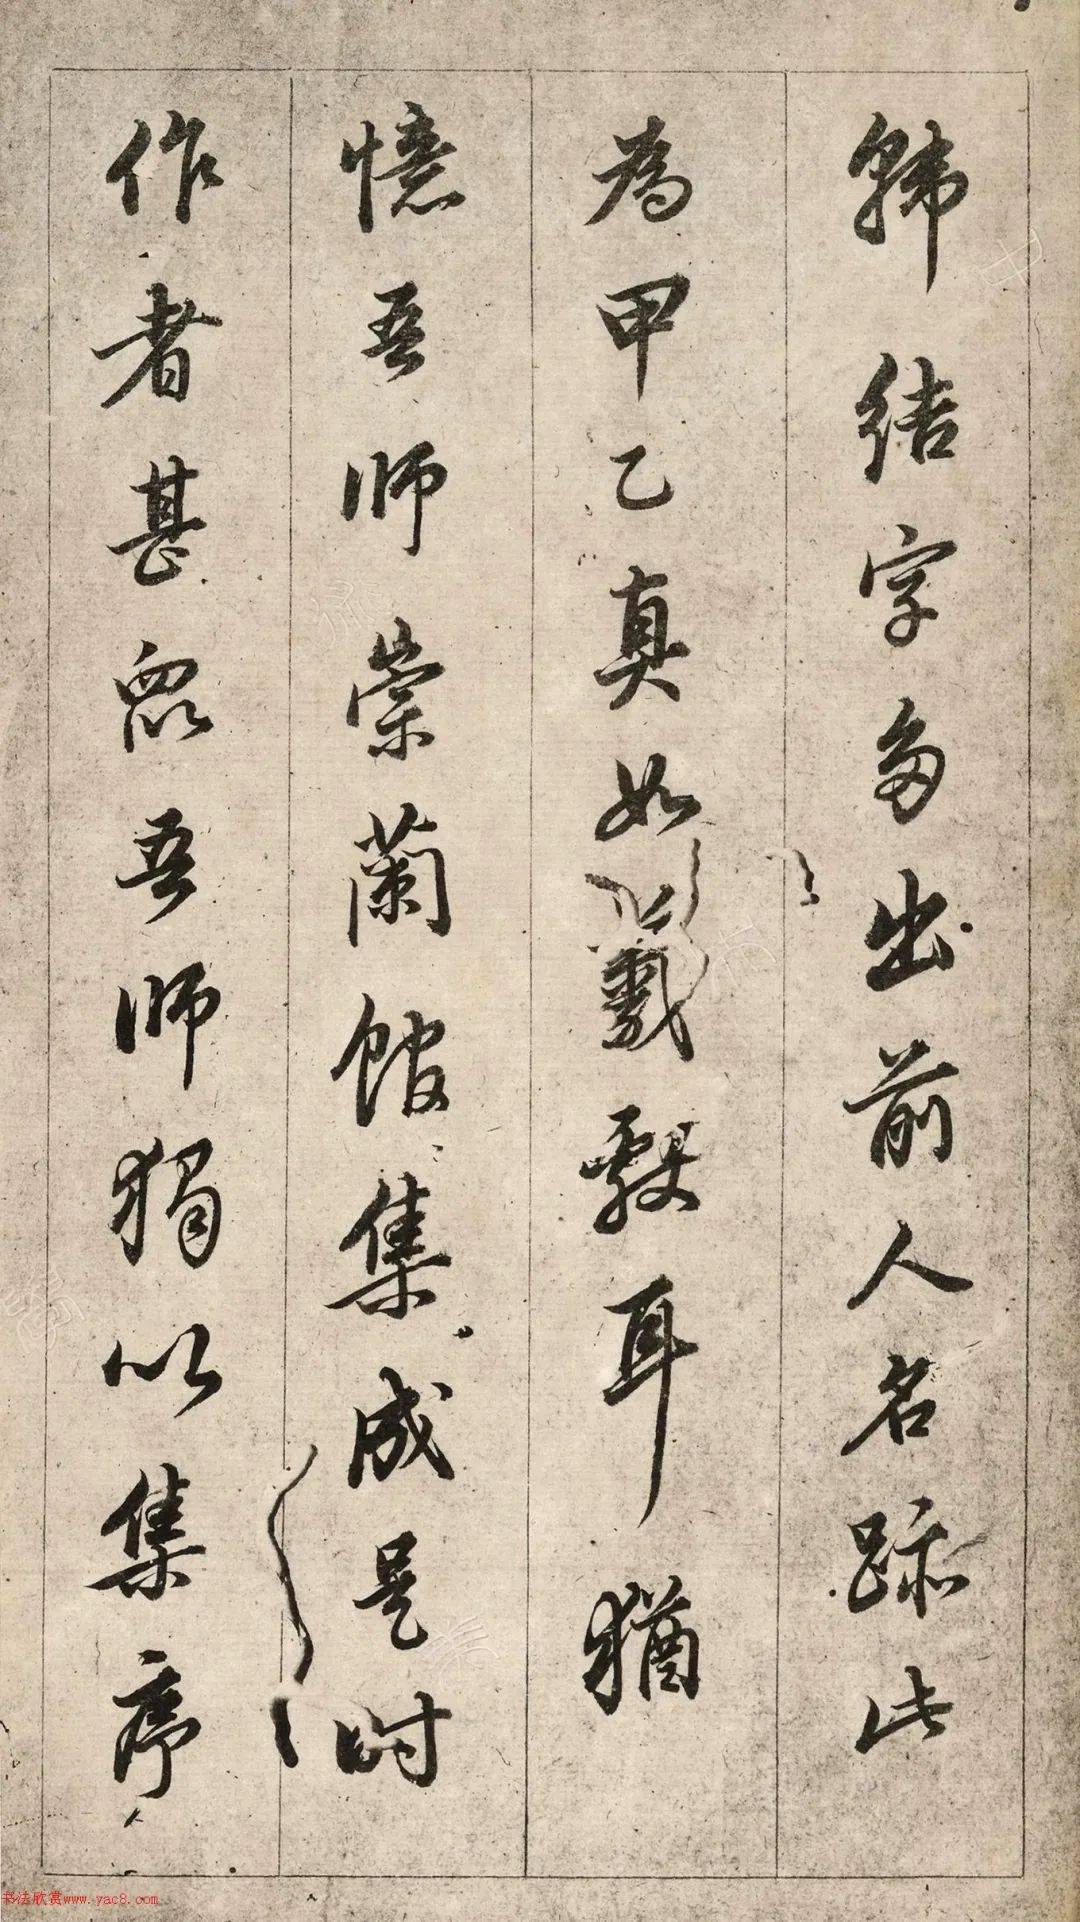 結字多出前人名跡此
為甲乙真如耳猶
憶吾師崇蘭館集成是時
作者甚眾吾師獨以集序
书法欣赏www.yac8.com